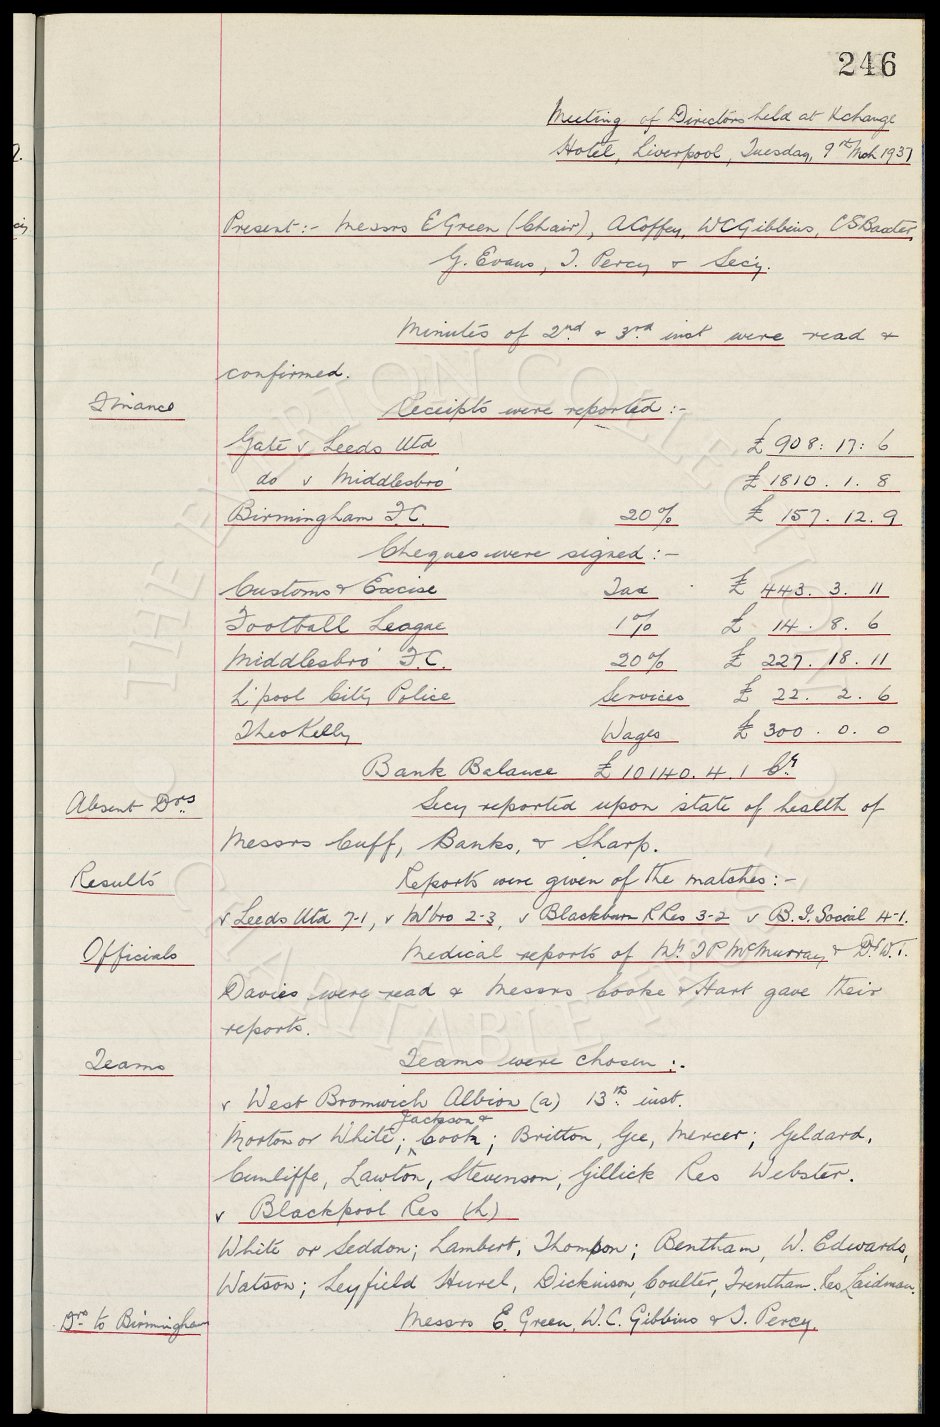 246
Meeting of Directors held at Xchange
Hotel, Liverpool, Tuesday, 9th Mch 1937
Present:- Messrs E Green (Chair), A Coffey, W C Gibbins, C S Baxter,
G. Evans, T. Percy & Secy.
Minutes of 2nd & 3rd inst were read &
confirmed.
Finance Receipts were reported:-
Gate v Leeds Utd £908: 17: 6
do v Middlesbro' £1810. 1. 8
Birmingham F.C. 20% £157. 12. 9
Cheques were signed:-
Customs & Excise Tax £443. 3. 11
Football League 1% £14. 8. 6
Middlesbro' F.C. 20% £227. 18. 11
L'pool City Police Services £22. 2. 6
Theo Kelly Wages £300. 0. 0
Bank Balance £10140. 4. 1 Cr.
Absent Drs Secy reported upon state of health of
Messrs Cuff, Banks, & Sharp.
Results Reports were given of the matches:-
v Leeds Utd 7-1, v M'bro 2-3, v Blackburn R Res 3-2 v B.I. Social 4-1.
Officials Medical reports of Mr. J P McMurray & Dr. W. T.
Davies were read & Messrs Cooke & Hart gave their
reports.
Teams Teams were chosen:-
v West Bromwich Albion (a) 13th inst.
Jackson &
Morton or White; Cook; Britton, Gee, Mercer; Geldard,
Cunliffe, Lawton, Stevenson, Gillick Res Webster.
v Blackpool Res (h)
White or Seddon; Lambert, Thomson; Bentham, W. Edwards,
Watson; Leyfield Hurel, Dickinson, Coulter, Trentham. Res Laidman.
Drs to Birmingham Messrs E. Green, W. C. Gibbins & T. Percy.
THE EVERTON COLLECTION
CHARITABLE TRUST